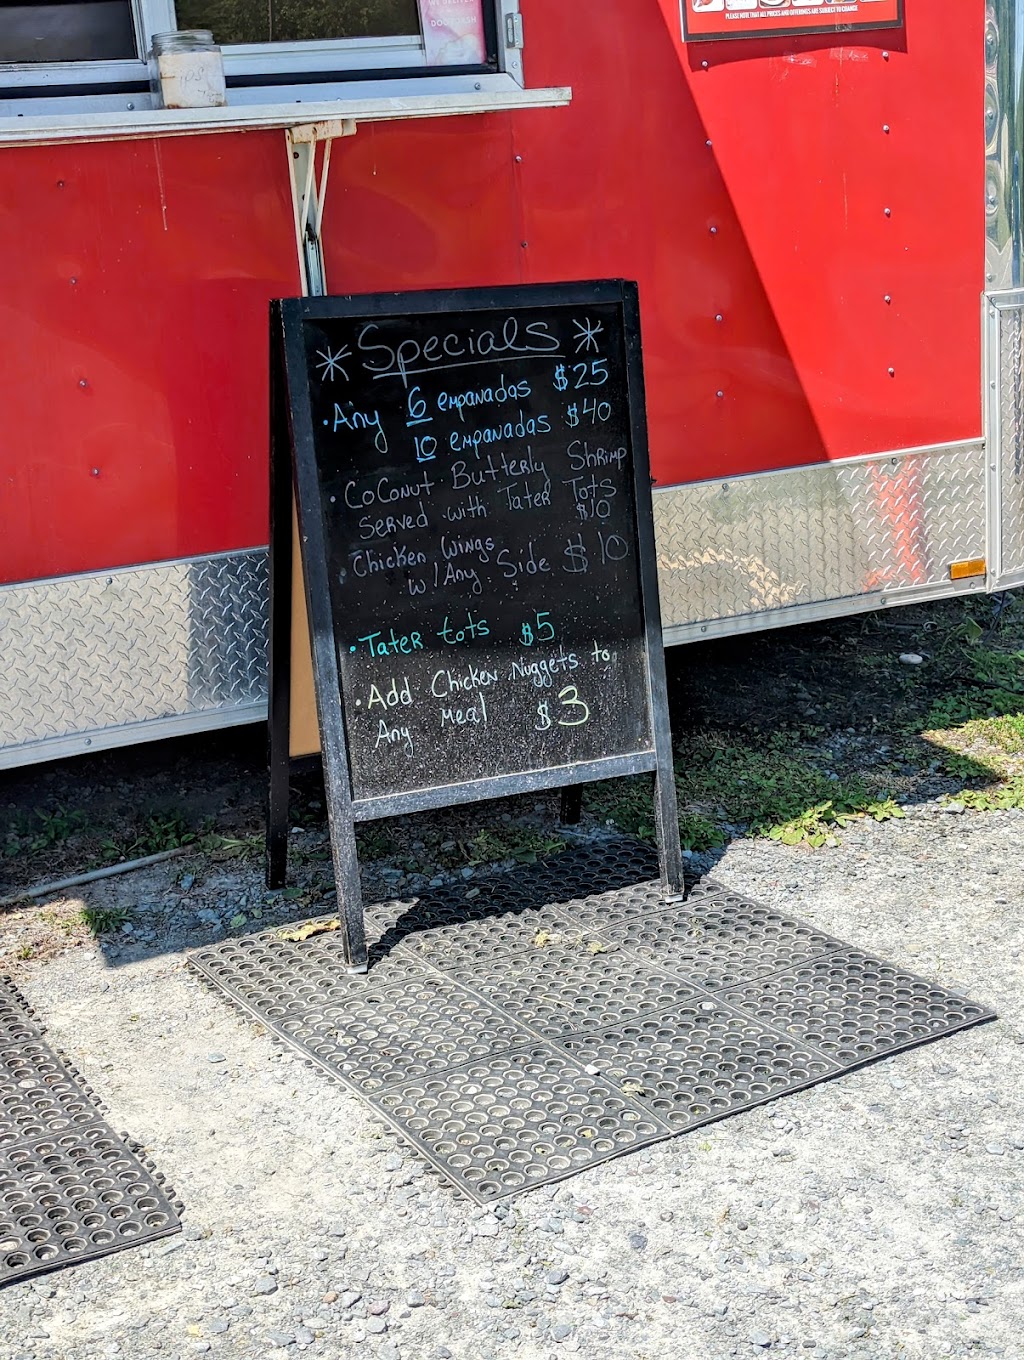 WE DELIVER
DOORDASH
PLEASE NOTE THAT ALL PRICES AND OFFERINGS ARE SUBJECT TO CHANGE
Specials
• Any 6 empanadas $25
10 empanadas $40
• Coconut Butterly Shrimp
Served with Tater Tots
$10
• Chicken Wings
w/Any Side $10
• Tater tots $5
• Add Chicken Nuggets to
Any Meal $3